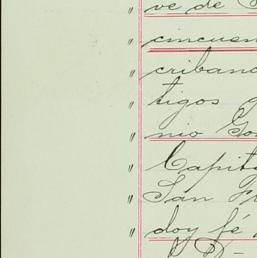 ve de
cincuen
criban
tigos
nio Gon
Capita
San
doy fé